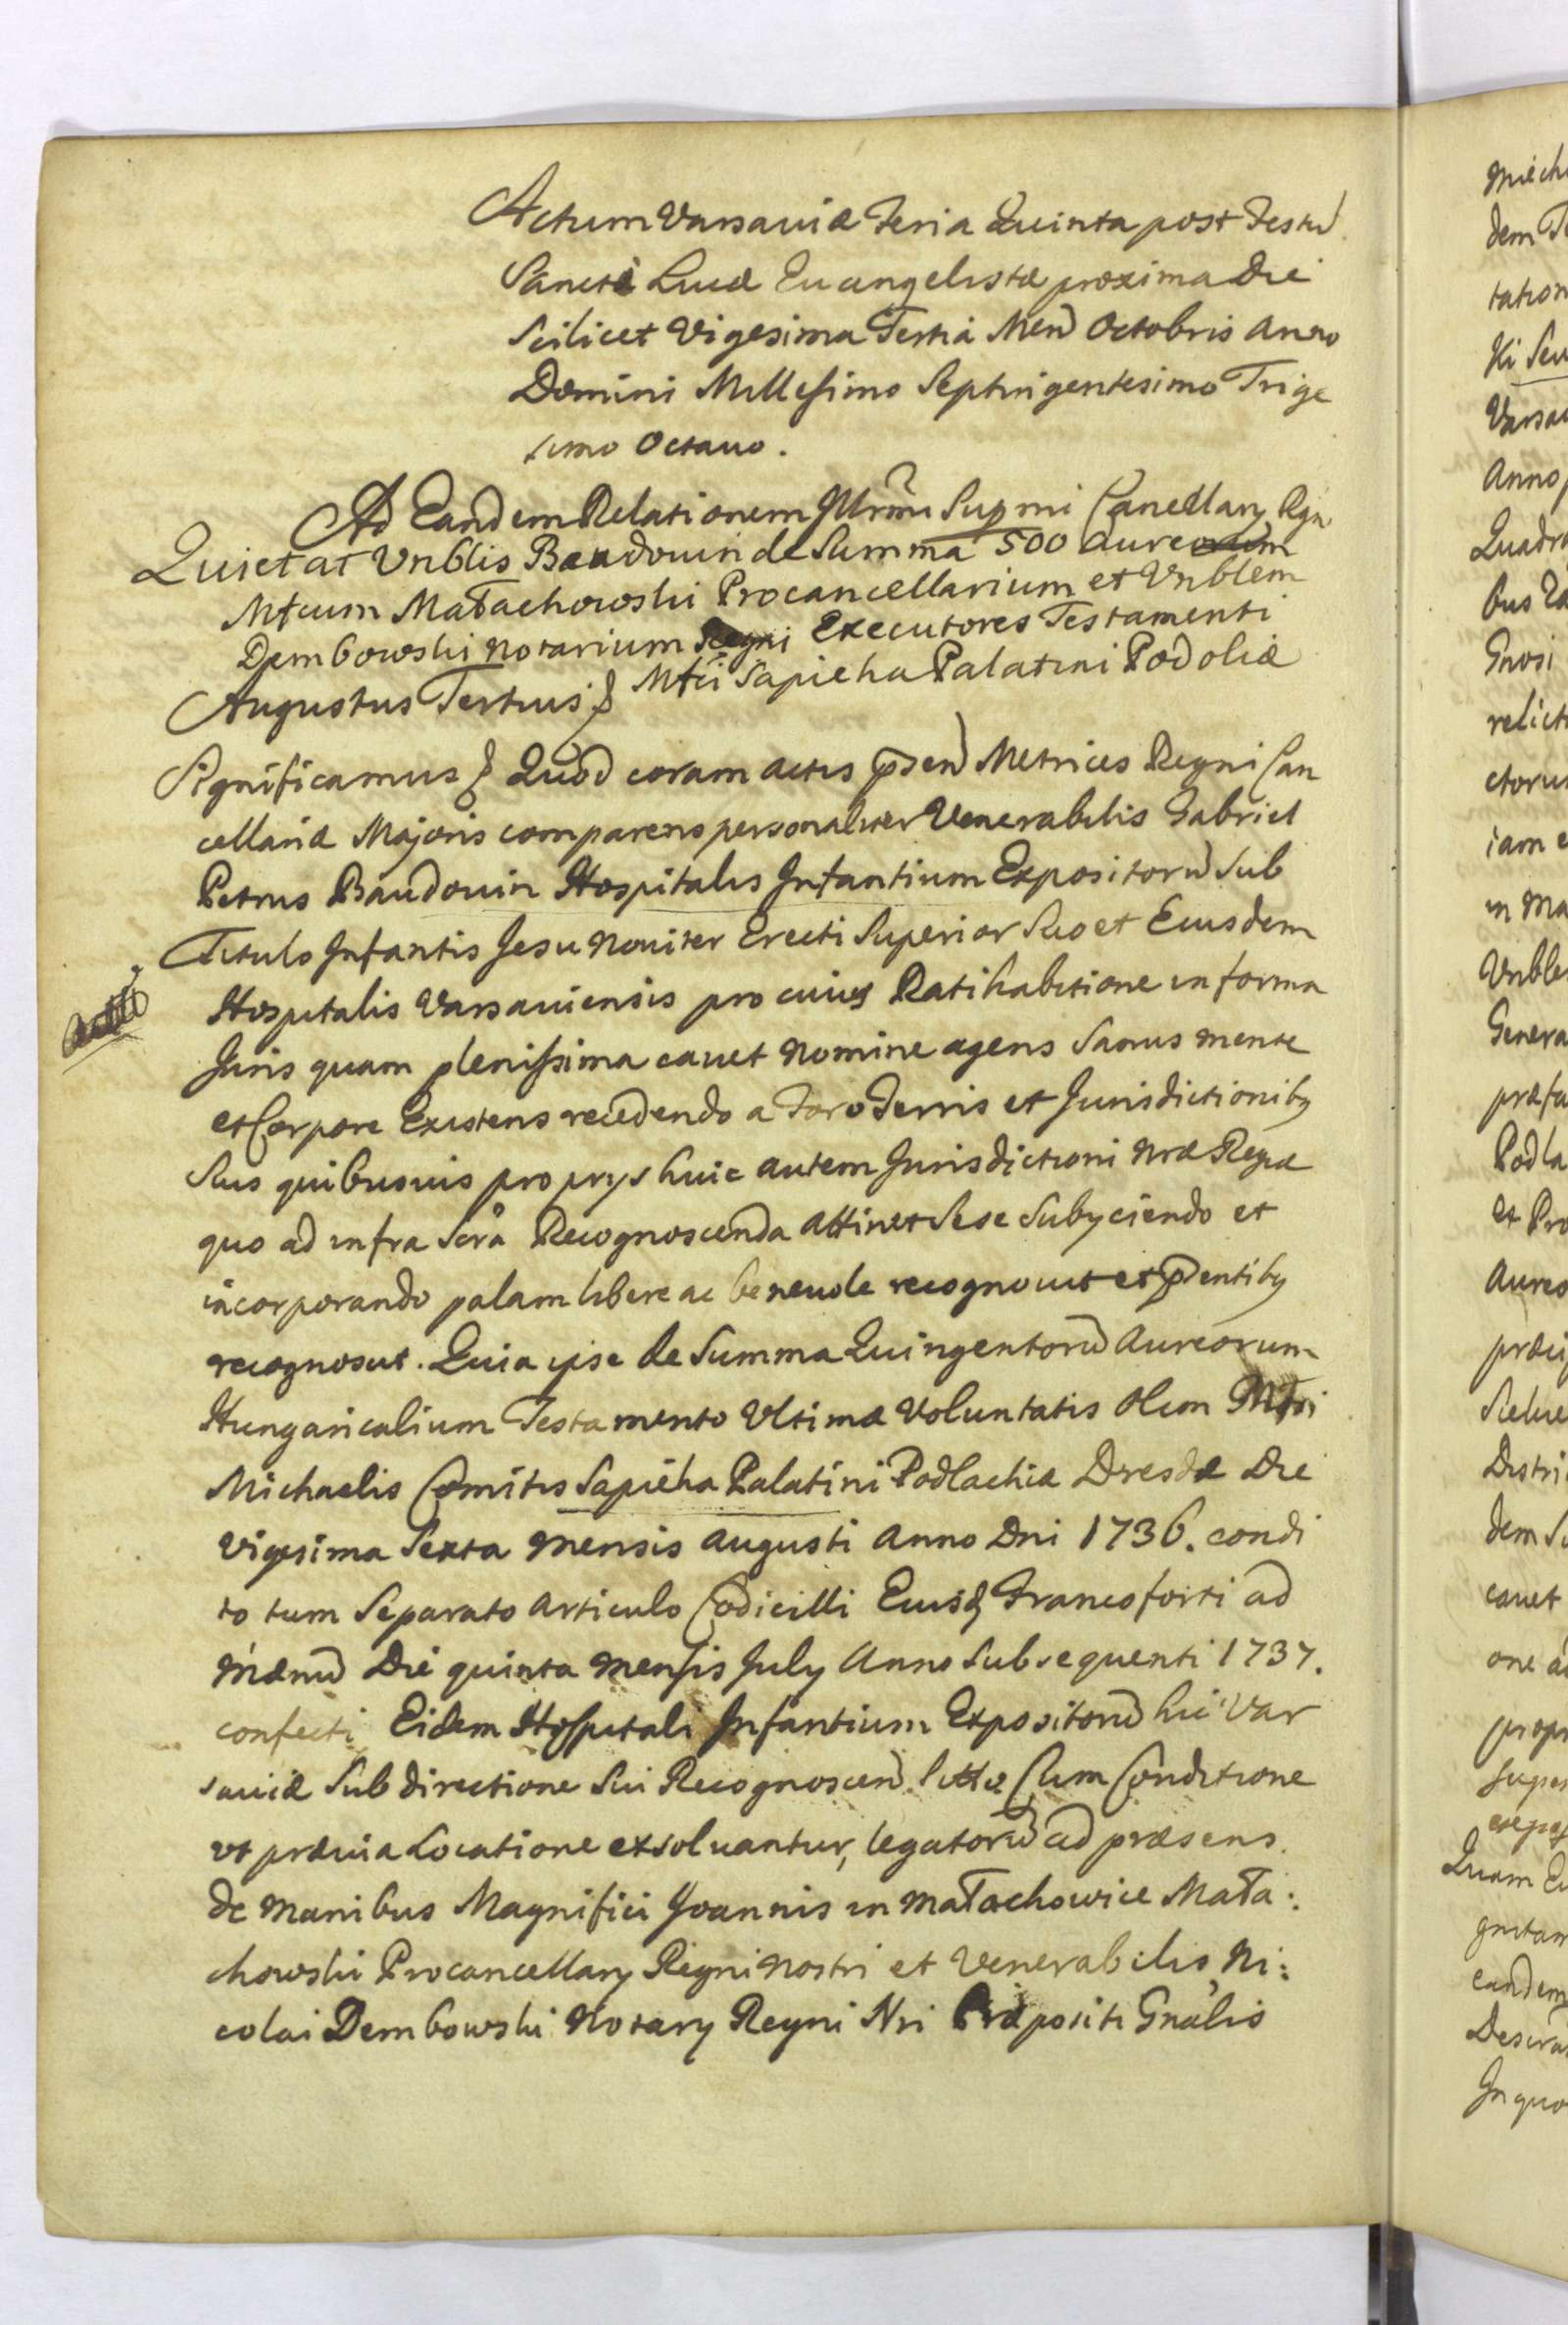 Actum Varsaviæ Feria Quinta post Festũ
Sancti Lucæ Euangelistæ proxima Die
Scilicet Vigesima Tertia Mens Octobris Anno
Domini Millesimo Septingentesimo Trige
simo Octavo.
Ad Eandem Relationem Illrm̃i Supmi Cancellarij Rgn
Quietat Vnblis Baudouin de Summa 500 aureorum
Mfcum Małachowski Procancellarium et Vnblem
Dembowski Notarium Regni Executores Testamenti
Mfci Sapieha Palatini Podoliæ
Augustus Tertius
Significamus Quod coram actis p̃sen Metrices Regni Can
cellariæ Majoris comparens personaliter Venerabilis Gabriel
Petrus Baudouin Hospitalis Infantium Expositorũ Sub
Titulo Infantis Jesu Noviter Erecti Superior Suo et Eiusdem
Hospitalis Varsaviensis pro cuius Ratihabitione in forma
Juris quam plenissima cavet Nomine agens Sanus mente
et Corpore Existens recedendo a Foro Terris et Jurisdictionibq
Suis quibusvis proprijs huic autem Jurisdictioni Nræ Regiæ
quo ad infra Scra Recognoscenda attinet Sese Subyciendo et
incorporando palam libere ac benevole recognovit et p̃sentibq
recognoscit. Quia ipse de Summa Quingentorũ Aureorum
Hungaricalium Testamento Ultimæ Voluntatis Olim Mfci
Michaelis Comitis Sapieha Palatini Podlachiæ Dresdæ Die
Vigesima Sexta Mensis Augusti Anno Dni 1736. condi
to tum Separato Articulo Codicilli Eiusd Francoforti ad
Mænũ Die quinta Mensis July Anno Subsequenti 1737.
confecti Eidem Hospitali Infantium Expositorũ hic Var
saviæ Sub directione Sui Recognoscen Cum Conditione
vt prævia Locatione exsolvantur, legatorũ ad præsens
de Manibus Magnifici Joannis in Małachowice Mała:
chowski Procancellary Regni Nostri et Venerabilis Ni:
colai Dembowski Notary Regni Nri Præpositi Gnalis